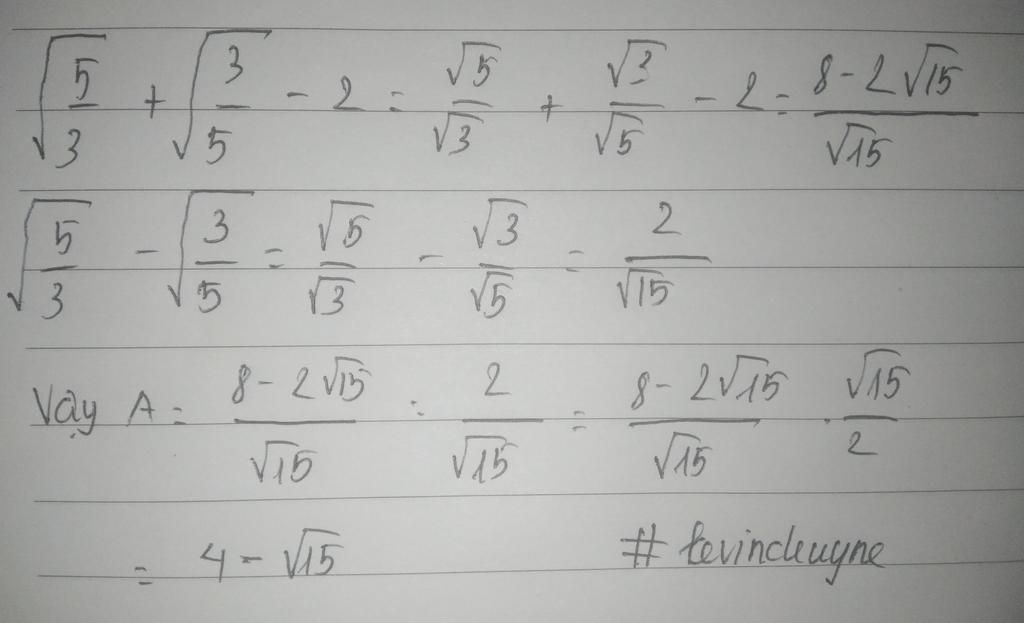 √(5/3) + √(3/5) - 2 = √5/√3 + √3/√5 - 2 = (8 - 2√15)/√15
√(5/3) - √(3/5) = √5/√3 - √3/√5 = 2/√15
Vậy A = (8 - 2√15)/√15 : 2/√15 = (8 - 2√15)/√15 . √15/2
= 4 - √15 #